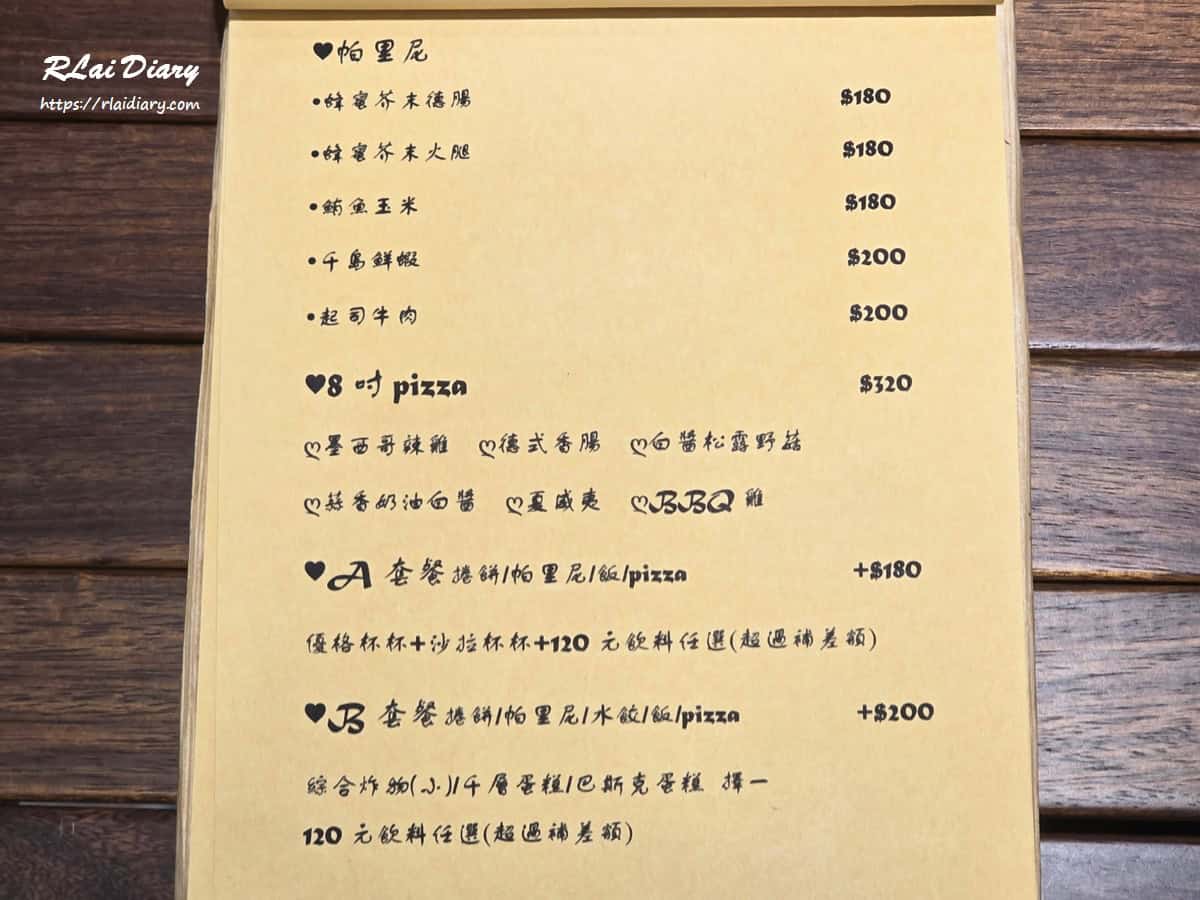 RLai Diary
https://rlaidiary.com
♥帕里尼
•蜂蜜芥末德腸 $180
•蜂蜜芥末火腿 $180
•鮪魚玉米 $180
•千島鮮蝦 $200
•起司牛肉 $200
♥8 吋 pizza $320
ღ墨西哥辣雞 ღ德式香腸 ღ白醬松露野菇
ღ蒜香奶油白醬 ღ夏威夷 ღBBQ 雞
♥A 套餐捲餅/帕里尼/飯/pizza +$180
優格杯杯+沙拉杯杯+120 元飲料任選(超過補差額)
♥B 套餐捲餅/帕里尼/水餃/飯/pizza +$200
綜合炸物(小)/千層蛋糕/巴斯克蛋糕 擇一
120 元飲料任選(超過補差額)